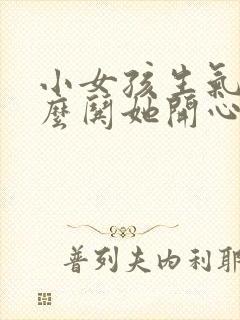 小女孩生氣
麼鬨她開心
普列夫内利耶